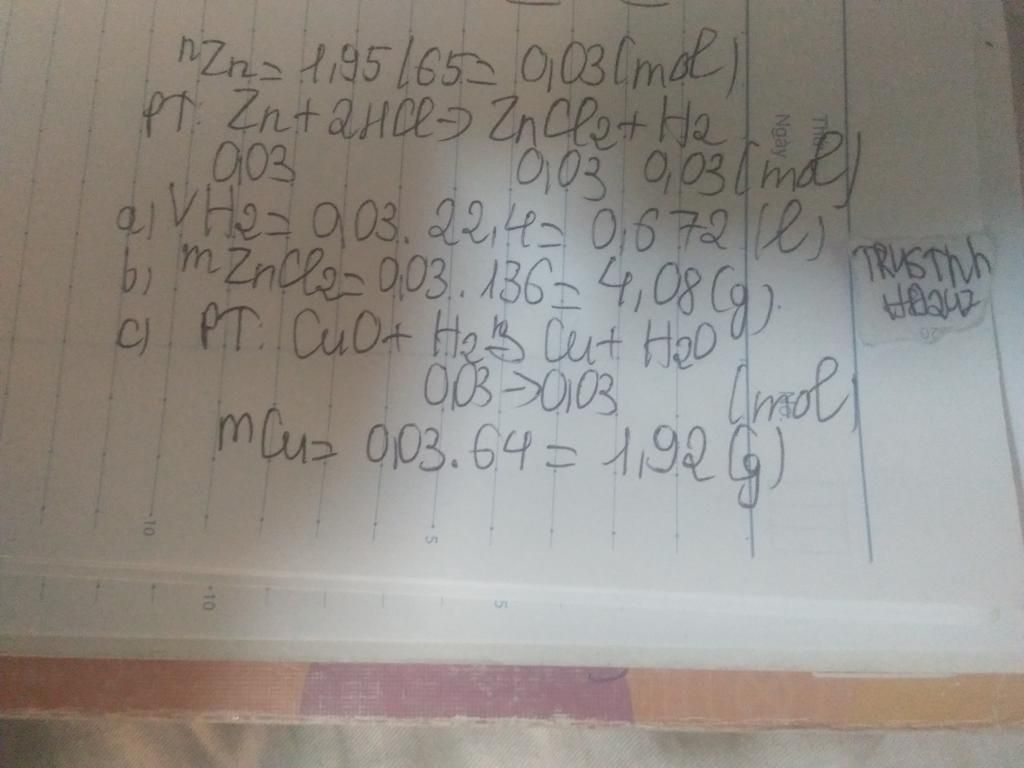 nZn = 1,95/65 = 0,03 (mol)
PT: Zn + 2HCl → ZnCl2 + H2
0,03 0,03 0,03 (mol)
a) VH2 = 0,03 . 22,4 = 0,672 (l)
b) mZnCl2 = 0,03 . 136 = 4,08 (g).
c) PT: CuO + H2 → Cu + H2O
0,03 → 0,03 (mol)
mCu = 0,03 . 64 = 1,92 (g)
Ngày
10
5
10
5
20